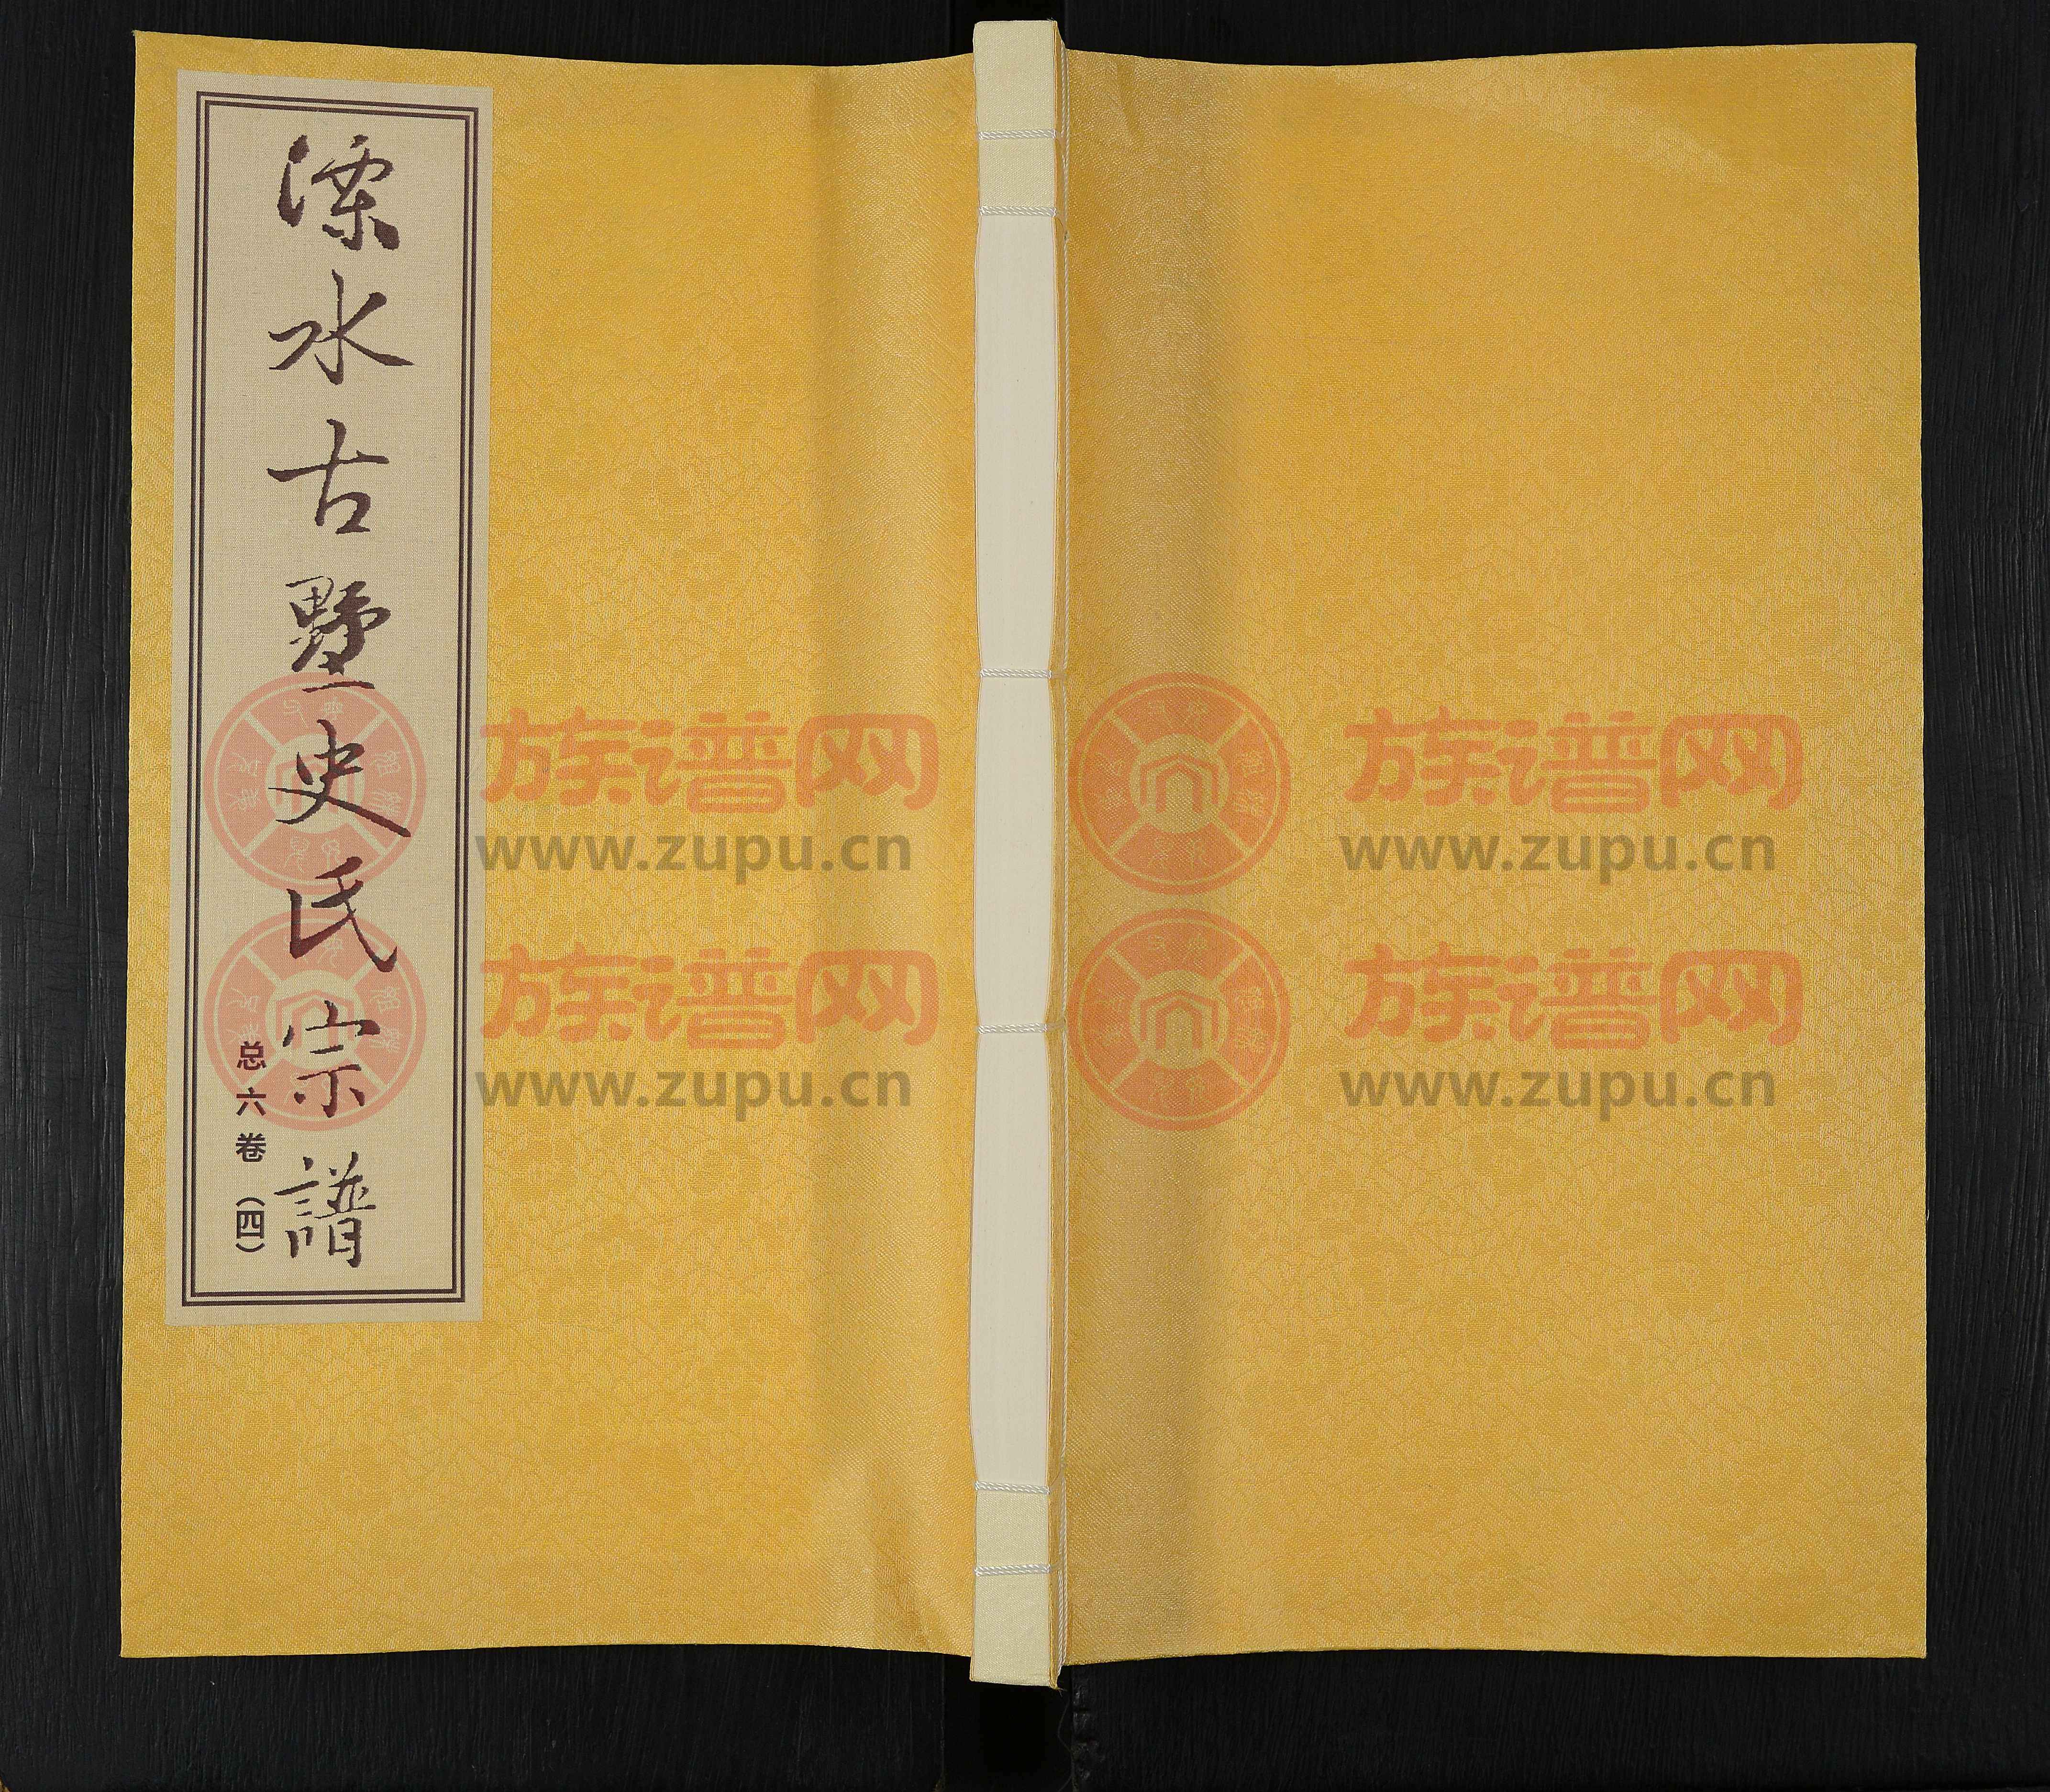 溧水古墅史氏宗譜
总六卷（四）
族谱网
www.zupu.cn
族谱网
www.zupu.cn
族谱网
www.zupu.cn
族谱网
www.zupu.cn